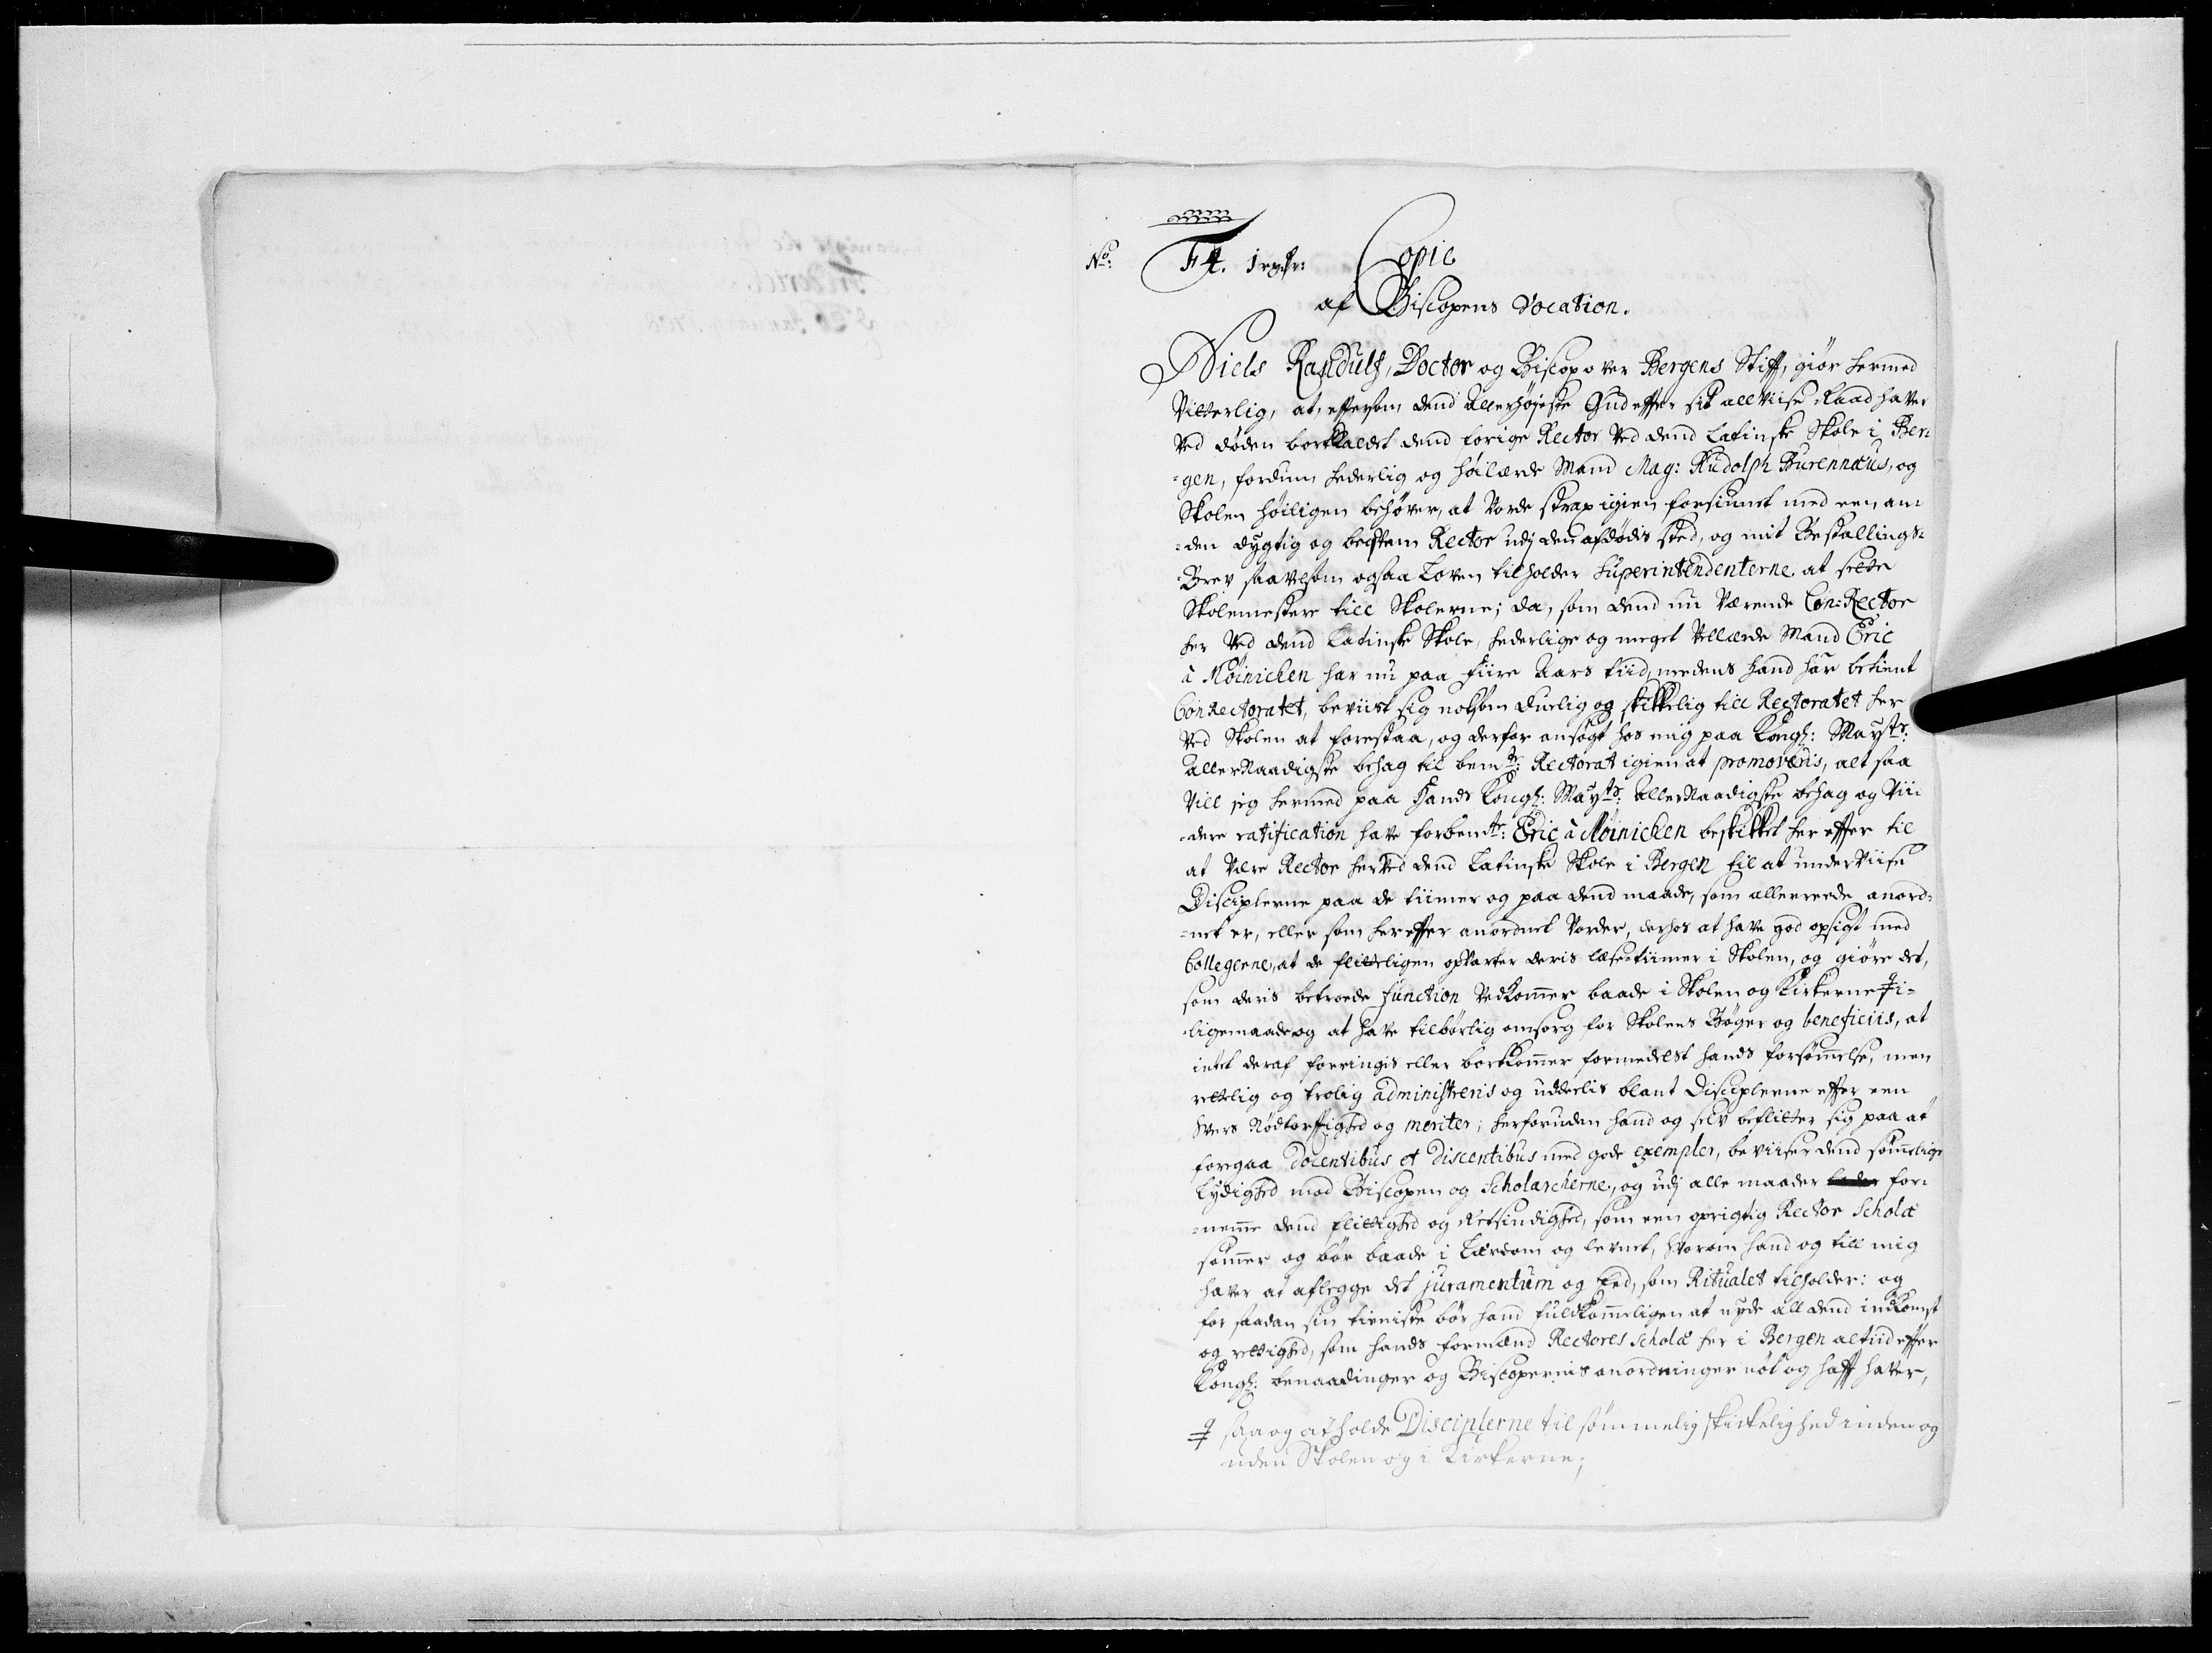 No: F4. Copie
af Biscopens Vocation.
Niels Randulf, Doctor og Biscop over Bergens Stift, giör hermed
Vitterlig, at, eftersom dend Allerhøjeste Gud efter sit allviise Raad haver
ved døden bortkaldt dend forige Rector ved dend Latinske Skole i Ber-
=gen, fordum hederlig og høilærde Mand Mag: Rudolph Burennæus, og
Skolen høiligen behøver, at vorde strax igien forsiunet med een an-
=den dygtig og beqvem Rector udj den afdødis sted, og mit Bestallings=
Brev saavelsom ogsaa Loven tilholder Superintendenterne at sette
Skolemestere till Skolerne; da, som dend nu Værende Con=Rector
her ved dend Latinske Skole, hederlige og meget Vellærde Mand Eric
à Möinichen har nu paa fiire Aars tiid, medens hand har betient
ConRectoratet, beviist sig noksom duelig og skikkelig till Rectoratet her
ved Skolen at forestaa, og derfor ansøgt hos mig paa Kongl: Mayts:
allerNaadigste behag til bemte: Rectorat igien at promoveris, alt saa
Vill jeg hermed paa Hands Kongl: Mayts: AllerNaadigste behag og Vii-
=dere ratification have forbemte: Eric à Möinichen beskikket her efter til
at være Rector her ved dend Latinske Skole i Bergen til at underviise
Disciplerne paa de tiimer og paa dend maade, som allereede anord=
=net er, eller som herefter anordnet vorder, derhos at have god opsigt med
Collegerne, at de flitteligen opvarter deris læse=tiimer i Skolen, og giöre det,
som deris betroede function vedkommer baade i Skolen og Kirkerne ‡ i=
ligemaade og at have tilbørlig omsorg for Skolens Bøger og beneficiis, at
intet deraf forringis eller bortkommer formedelst hands forsømmelse, men
rettelig og trolig administreris og uddelis blant Disciplerne efter een
hvers Nödtørftighed og meriter; herforuden hand og selv beflitter sig paa at
foregaa Docentibus et Discentibus med gode exempler, beviiser dend sømmelige
Lydighed mod Biscopen og Scholarcherne, og udj alle maader for=
=nemme dend flittighed og Retsindighed, som een oprigtig Rector Scholæ
sømmer og bör baade i Lærdom og levnet, hvorom hand og till mig
haver at aflegge det juramentum og Eed, som Ritualet tilholder: og
for saadan sin tieniste bör hand fuldkommeligen at nyde all dend indkomst
og rettighed, som hands formænd Rectores Scholæ her i Bergen altiid efter
Kongl: benaadinger og Biscopernis anordninger nöt og haft haver,
‡ saa og at holde Disciplerne til sømmelig skickelighed inden og
uden Skolen og i Kirkerne;